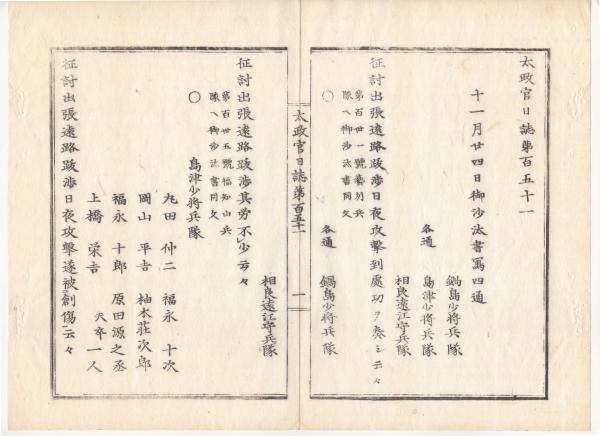 太政官日誌第百五十一
十一月廿四日御沙汰書寫四通
鍋島少將兵隊
各通 島津少將兵隊
相良遠江守兵隊
征討出張遠路跋渉日夜攻擊到處功ヲ奏シ云々
第百廿一號藝州兵
隊ヘ御沙汰書同文
○
各通 鍋島少將兵隊
太政官日誌第百五十一
一
相良遠江守兵隊
征討出張遠路跋渉其勞不少云々
第百廿五號福知山兵
隊ヘ御沙汰書同文
○
島津少將兵隊
丸田 仲二 福永 十次
岡山 平吉 柚木莊次郎
福永 十郎 原田源之丞
上橋 榮吉 夫卒一人
征討出張遠路跋渉日夜攻擊遂被創傷云々